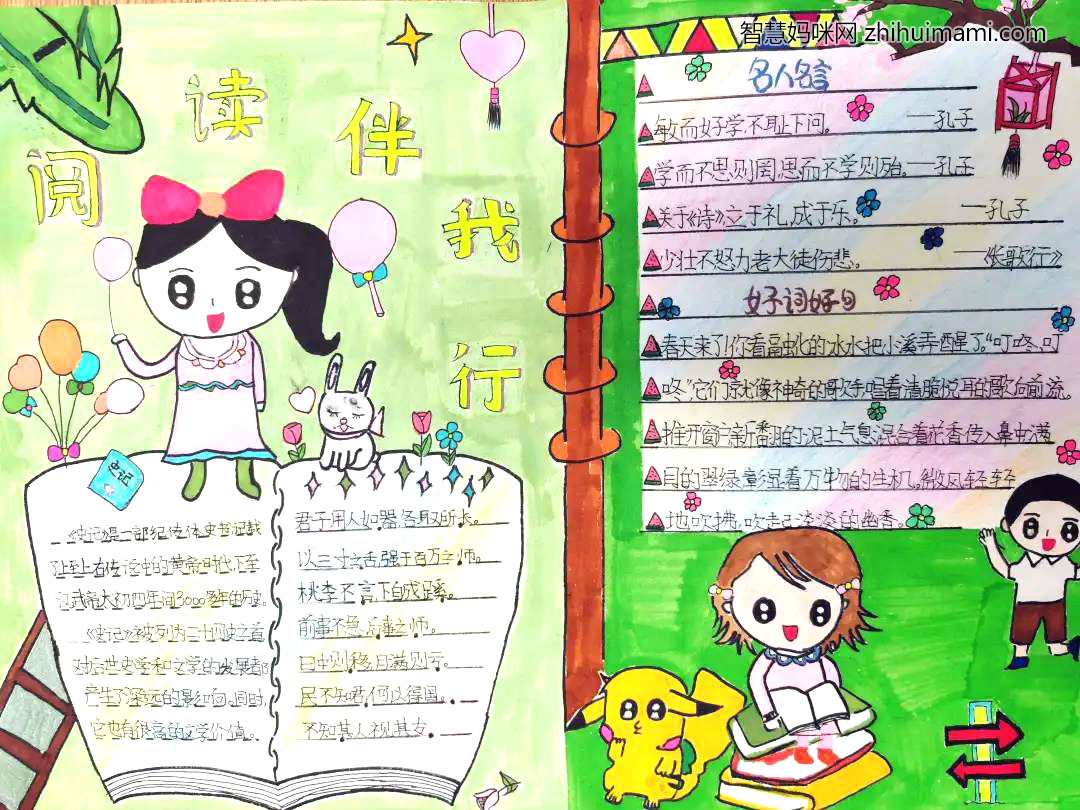 智慧妈咪网 zhihuimami.com
阅读伴我行
史记
《史记》是一部纪传体史书记载
了上至上古传说中的黄帝时代,下至
汉武帝太初四年间3000多年的历史。
《史记》被列为二十四史之首
对后世史学和文学的发展都
产生了深远的影响,同时,
它也有很高的文学价值。
君子用人如器,各取所长。
以三寸之舌强于百万之师。
桃李不言下自成蹊。
前事不忘,后事之师。
日中则移,月满则亏。
民不知君,何以得国。
不知其人视其友。
名人名言
敏而好学,不耻下问。 ——孔子
学而不思则罔,思而不学则殆。——孔子
关于《诗》,立于礼,成于乐。 ——孔子
少壮不努力老大徒伤悲。 ——《长歌行》
好词好句
春天来了!你看融化的冰水把小溪弄醒了。“叮咚、叮
咚”它们就像神奇的歌手唱着清脆悦耳的歌向前流。
推开窗户新翻的泥土气息混合着花香传入鼻中满
目的翠绿彰显着万物的生机,微风轻轻
地吹拂,吹走已淡淡的幽香。